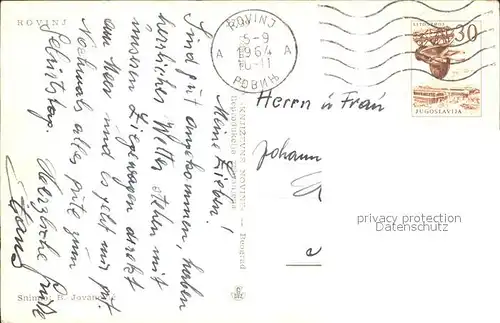 ROVINJ
Meine Lieben!
Sind gut angekommen, haben
herrliches Wetter stehen mit
unseren direkt
am Meer und es geht mir gut
Nochmals alles gute zum
Geburtstag. Herzliche Grüße
Hans
Snimio: B. Jovanović
Beograd
ROVINJ
5-9
A 1964 A
10-11
РОВИЊ
30
JUGOSLAVIJA
Herrn u Frau
Johann
privacy protection
Datenschutz